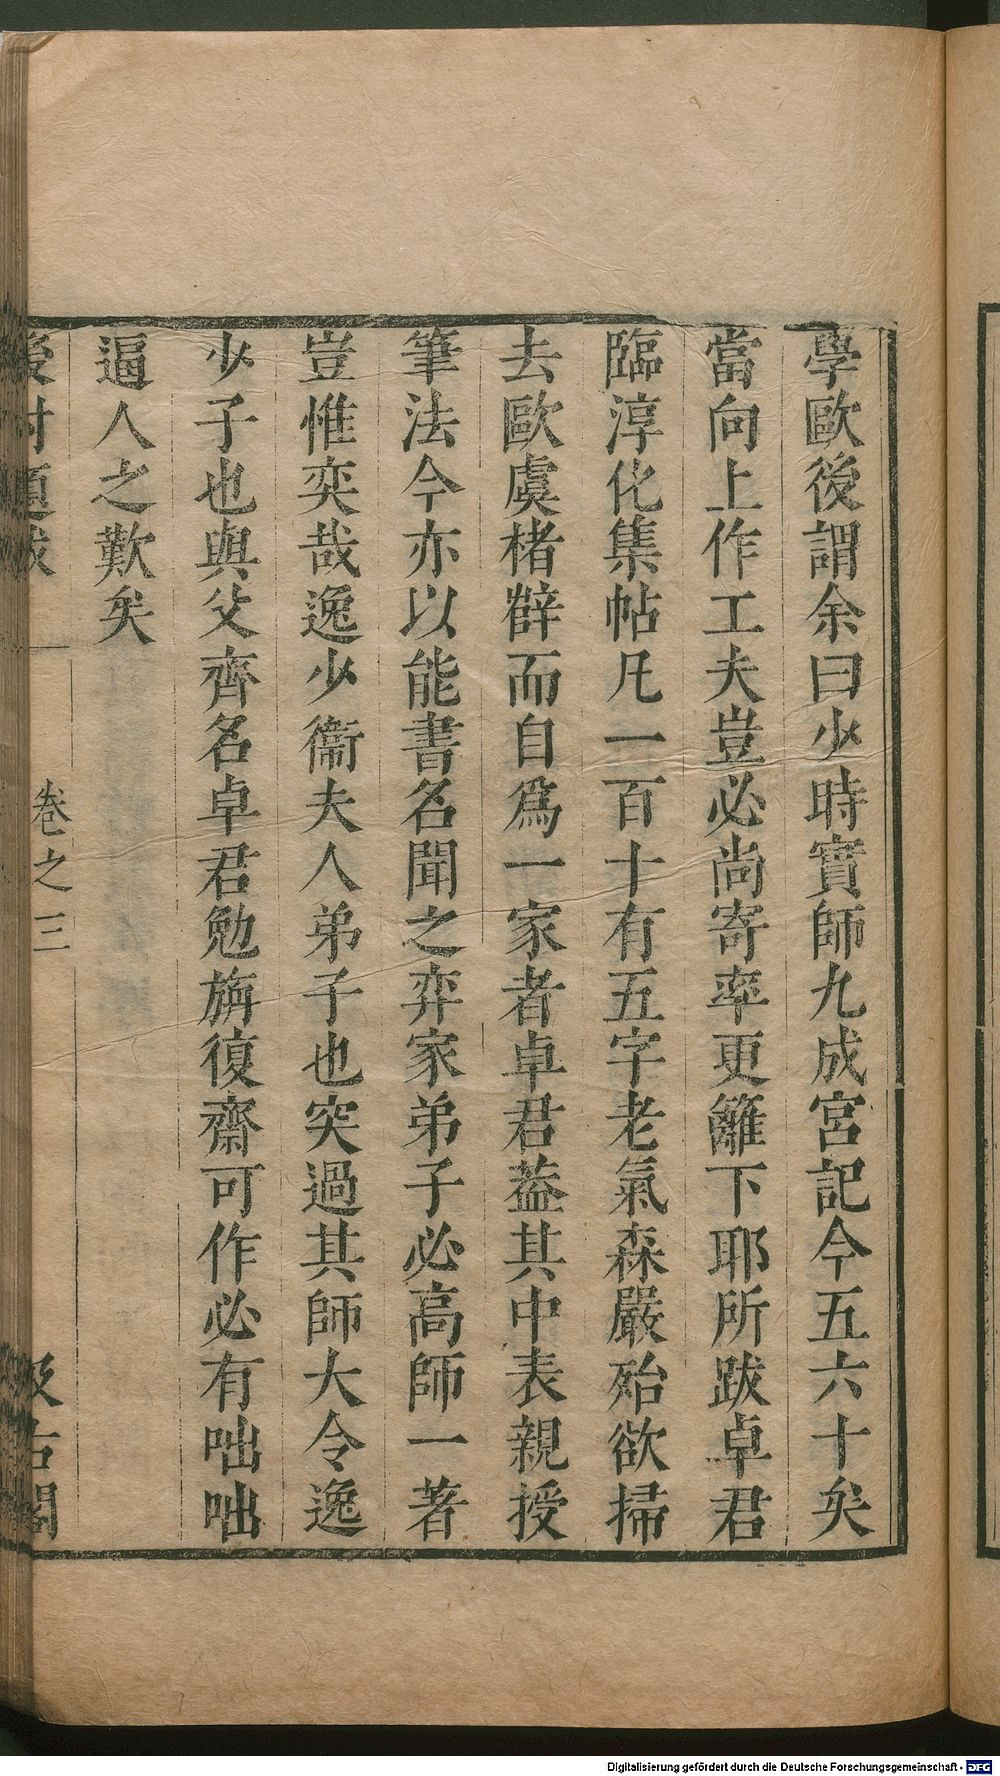 學歐後謂余曰少時實師九成宮記今五六十矣
當向上作工夫豈必尚寄率更籬下耶所跋卓君
臨淳化集帖凡一百十有五字老氣森嚴殆欲掃
去歐虞楮薛而自爲一家者卓君葢其中表親授
筆法今亦以能書名聞之弈家弟子必高師一著
豈惟奕哉逸少衞夫人弟子也突過其師大令逸
少子也與父齊名卓君勉旃復齋可作必有咄咄
逼人之歎矣
卷之三
汲古閣
Digitalisierung gefördert durch die Deutsche Forschungsgemeinschaft - DFG